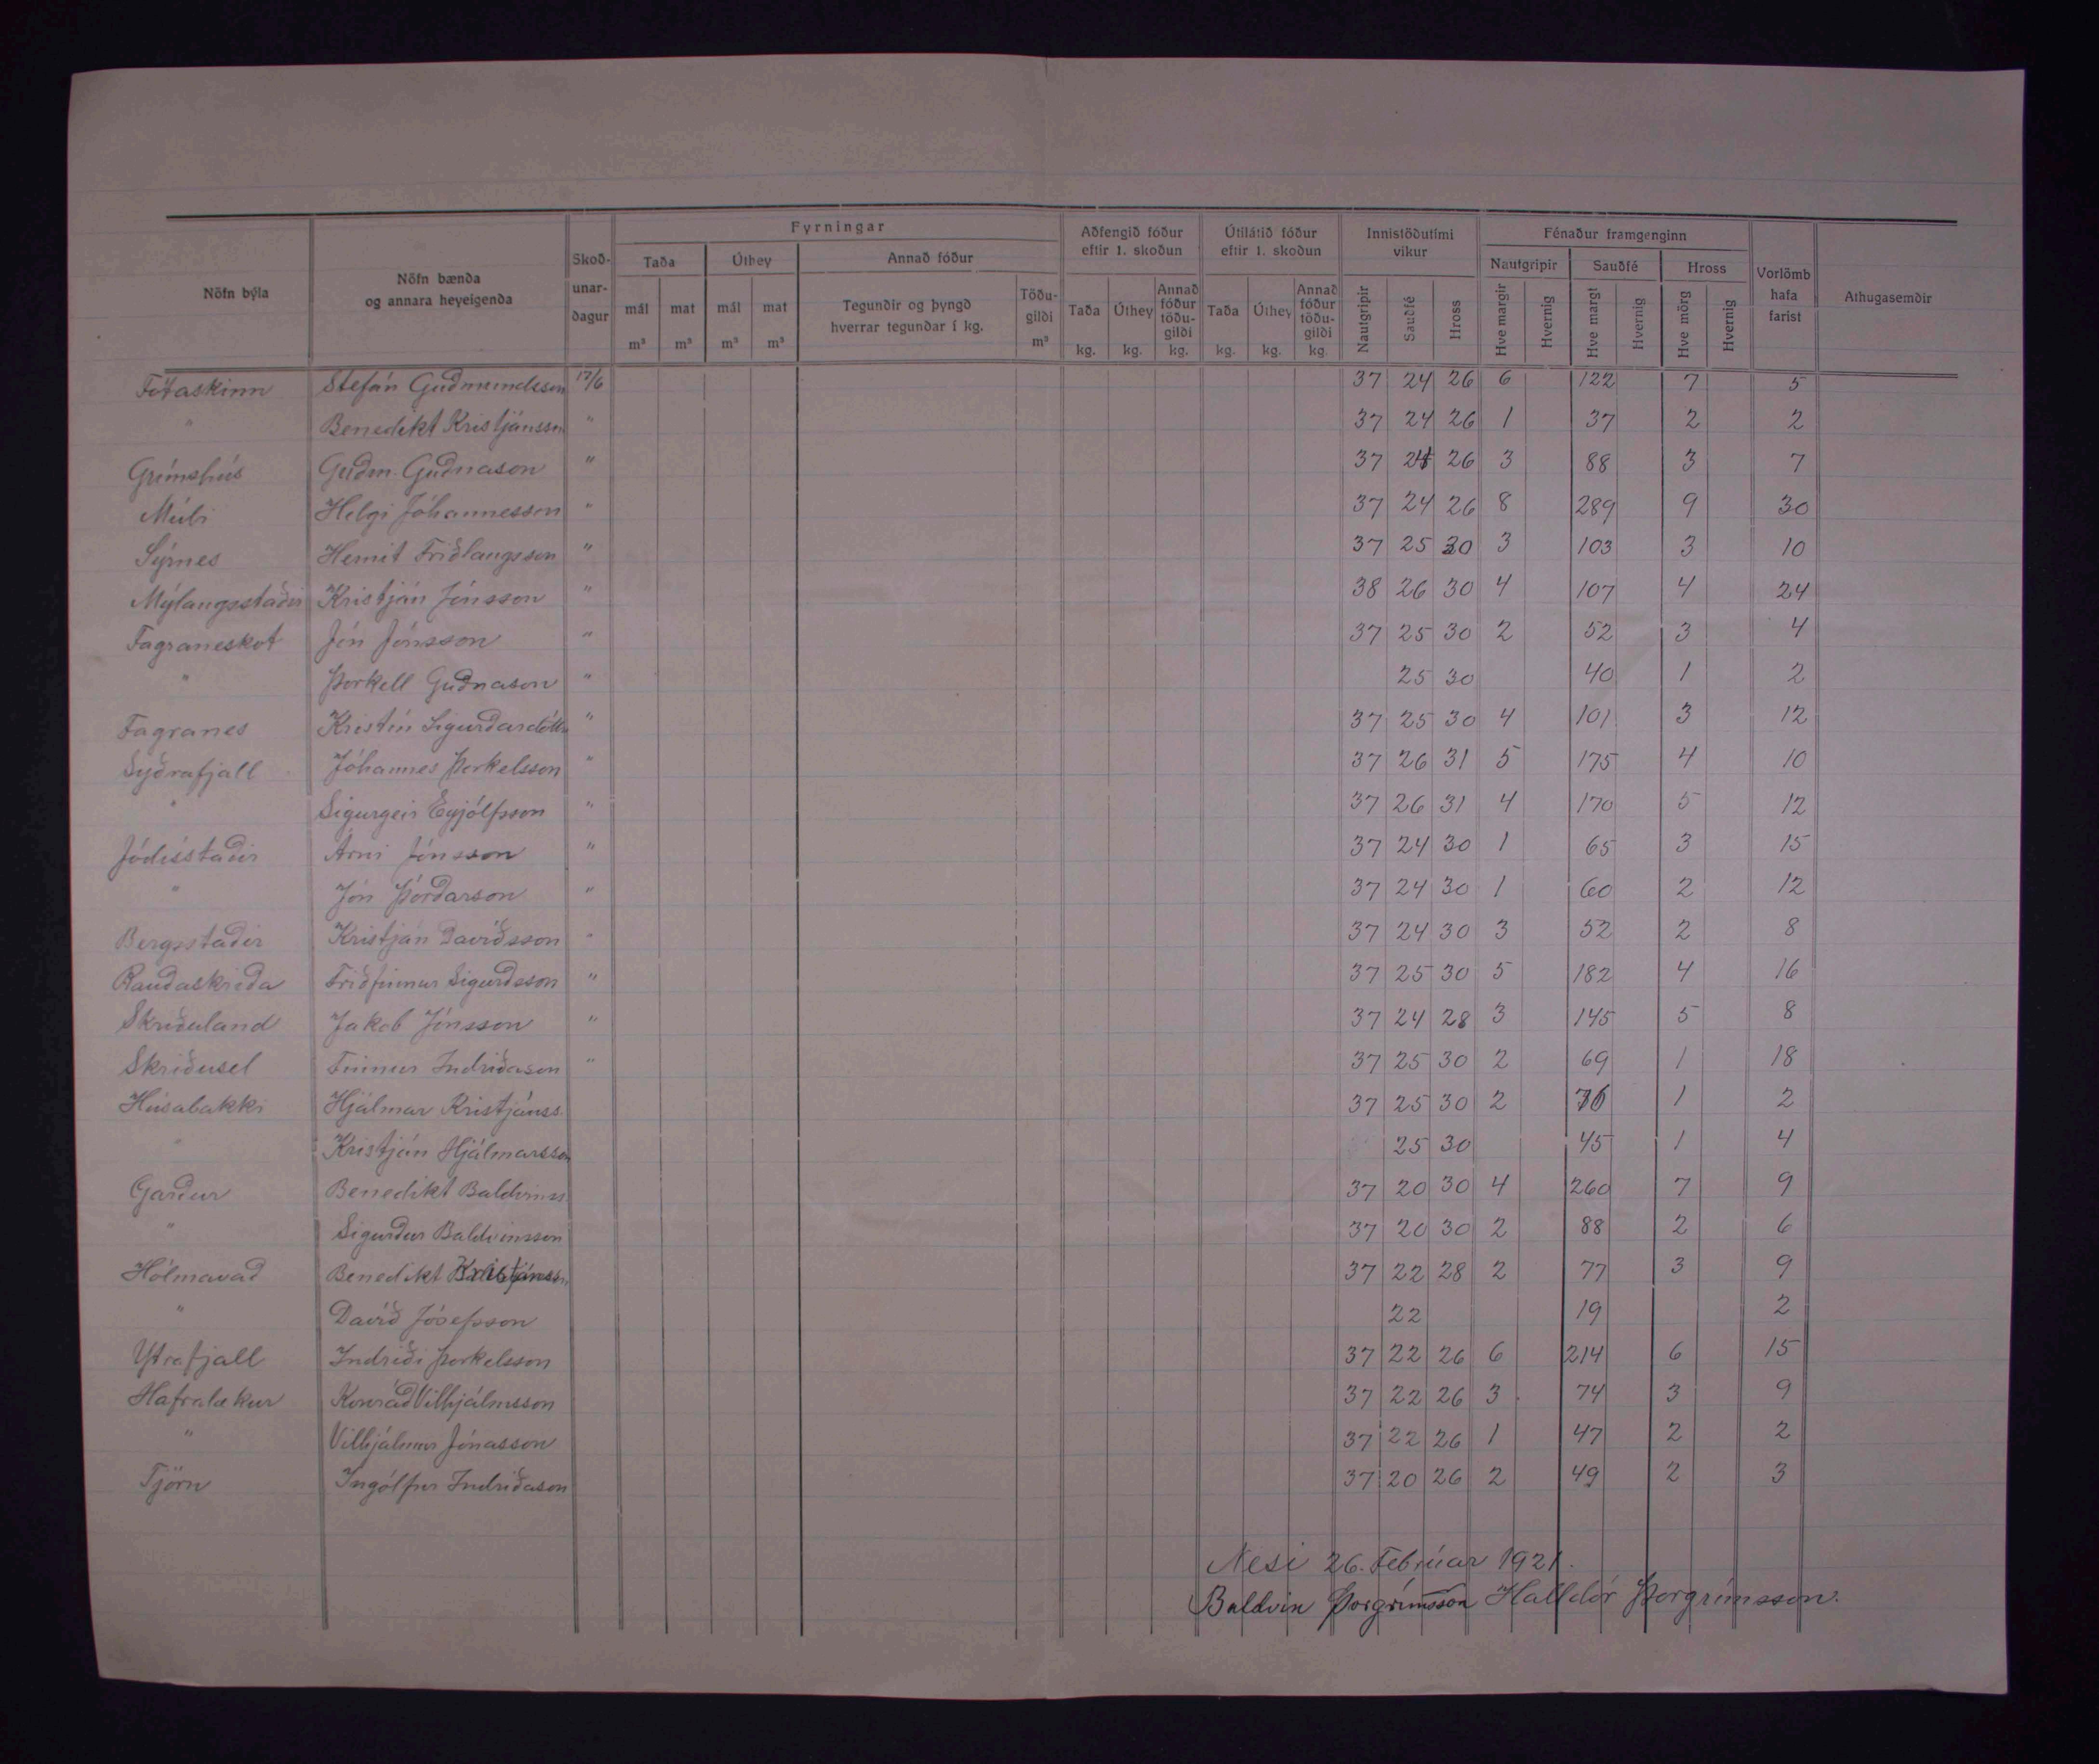 Fyrningar
Aðfengið fóður eftir 1. skoðun
Útilátið fóður eftir 1. skoðun
Innistöðutími vikur
Fénaður framgenginn
Nöfn býla
Nöfn bænda og annara heyeigenda
Skoð-unar-dagur
Taða
Úthey
Annað fóður
Nautgripir
Sauðfé
Hross
Vorlömb hafa farist
Athugasemdir
mál m³
mat m³
mál m³
mat m³
Tegundir og þyngd hverrar tegundar í kg.
Töðu-gildi m³
Taða kg.
Úthey kg.
Annað fóður töðu-gildi kg.
Taða kg.
Úthey kg.
Annað fóður töðu-gildi kg.
Nautgripir
Sauðfé
Hross
Hve margir
Hvernig
Hve margt
Hvernig
Hve mörg
Hvernig
Fótaskinn Stefán Guðmundsson 17/6 37 24 26 6 122 7 5
" Benedikt Kristjánsson " 37 24 26 1 37 2 2
Grímshús Guðm. Guðnason " 37 24 26 3 88 3 7
Múli Helgi Jóhannesson " 37 24 26 8 289 9 30
Sýrnes Hernit Friðlaugsson " 37 25 30 3 103 3 10
Mýlaugsstaðir Kristján Jónsson " 38 26 30 4 107 4 24
Fagraneskot Jón Jónsson " 37 25 30 2 52 3 4
" Þorkell Guðnason " 25 30 40 1 2
Fagranes Kristín Sigurðardóttir " 37 25 30 4 101 3 12
Syðrafjall Jóhannes Þorkelsson " 37 26 31 5 175 4 10
" Sigurgeir Eyjólfsson " 37 26 31 4 170 5 12
Jódísstaðir Árni Jónsson " 37 24 30 1 65 3 15
" Jón Þórðarson " 37 24 30 1 60 2 12
Bergsstaðir Kristján Davíðsson " 37 24 30 3 52 2 8
Rauðaskriða Friðfinnur Sigurðsson " 37 25 30 5 182 4 16
Skriðuland Jakob Jónsson " 37 24 28 3 145 5 8
Skriðusel Finnur Indriðason " 37 25 30 2 69 1 18
Húsabakki Hjálmar Kristjánss. 37 25 30 2 76 1 2
" Kristján Hjálmarsson 25 30 45 1 4
Garður Benedikt Baldvinss 37 20 30 4 260 7 9
" Sigurður Baldvinsson 37 20 30 2 88 2 6
Hólmavað Benedikt Kristjánsson 37 22 28 2 77 3 9
" Davíð Jósefsson 22 19 2
Ytrafjall Indriði Þorkelsson 37 22 26 6 214 6 15
Hafralækur Konráð Vilhjálmsson 37 22 26 3 74 3 9
" Vilhjálmur Jónasson 37 22 26 1 47 2 2
Tjörn Ingólfur Indriðason 37 20 26 2 49 2 3
Nesi 26. Febrúar 1921.
Baldvin Þorgrímsson Halldór Þorgrímsson.